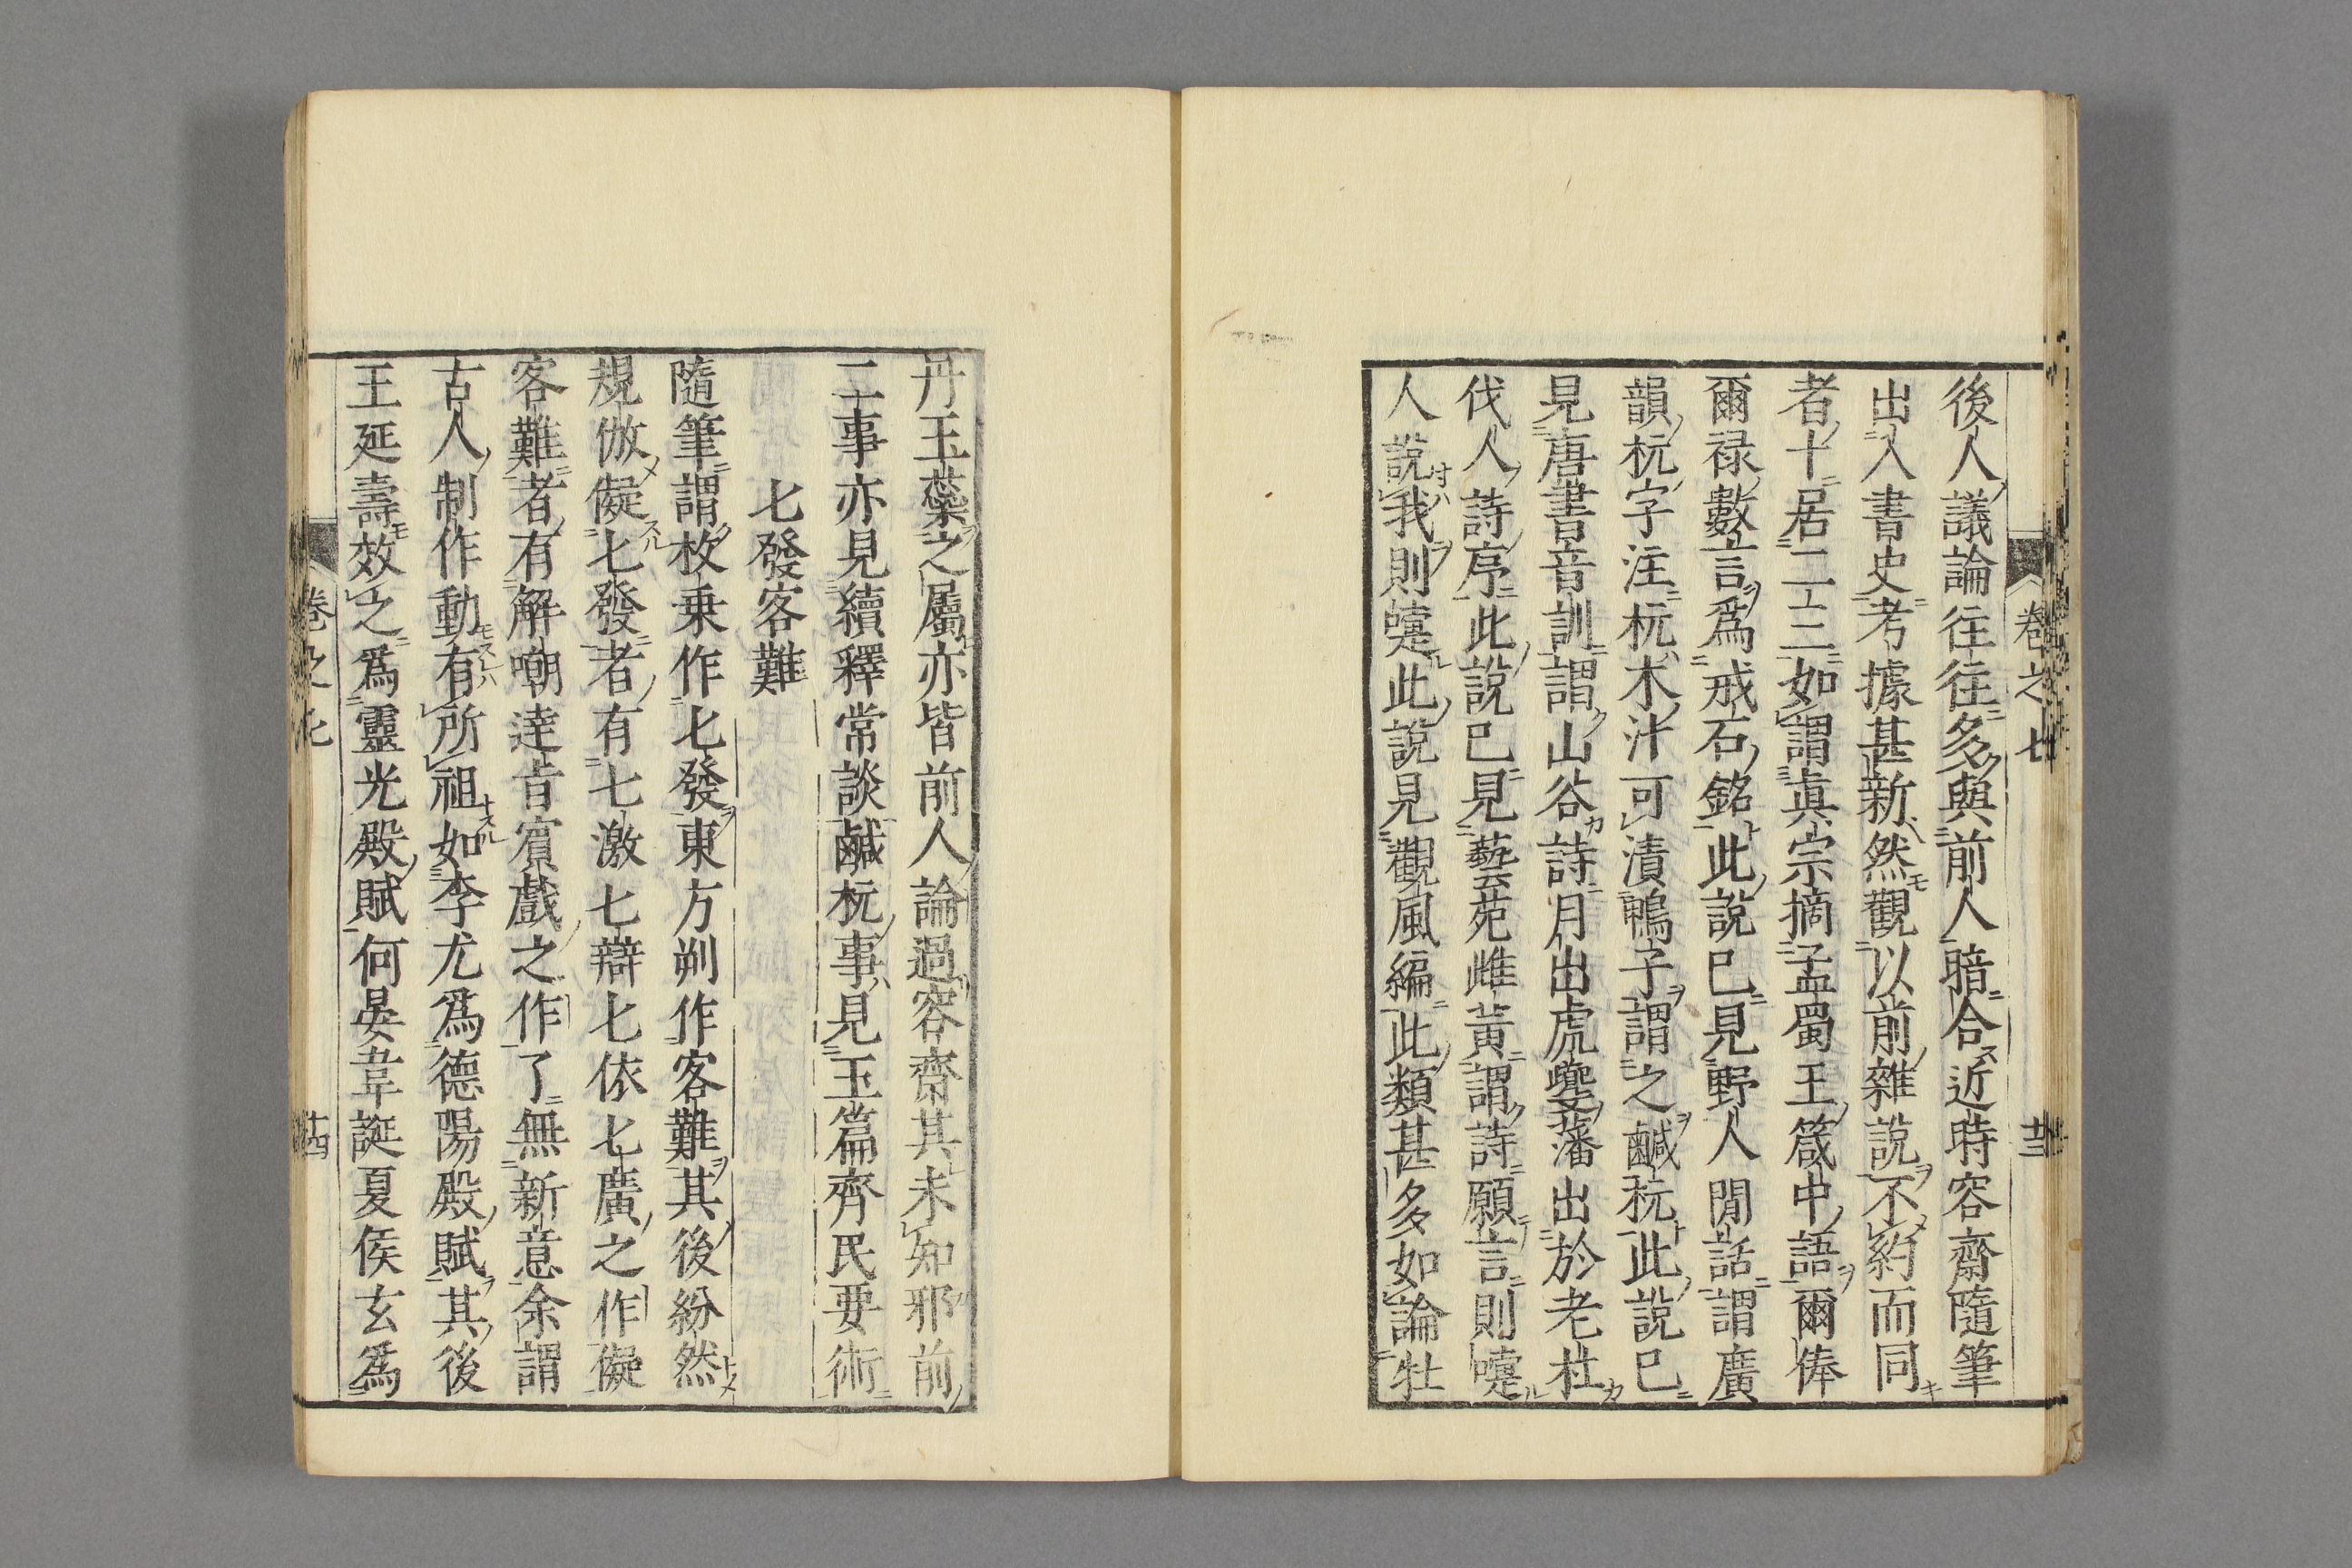 卷之七 廿三
後人議論往往多與前人暗合近時容齋隨筆
出入書史考據甚新然觀以前雜說不約而同
者十居二三如謂眞宗摘孟蜀王箴中語爾俸
爾祿數言爲戒石銘此說已見野人閒話謂廣
韻杬字注杬木汁可漬鴨子謂之鹹杬此說已
見唐書音訓謂山谷詩月出虎夔藩出於老杜
伐人詩序此說已見藝苑雌黃謂詩願言則嚏
人說我則嚏此說見觀風編此類甚多如論牡
丹玉蘂之屬亦皆前人論過容齋其未知邪前
二事亦見續釋常談鹹杬事見玉篇齊民要術
七發客難
隨筆謂枚乗作七發東方朔作客難其後紛然
規倣儗七發者有七激七辯七依七廣之作儗
客難者有解嘲達旨賓戲之作了無新意余謂
古人制作動有所祖如李尤爲德陽殿賦其後
王延壽效之爲靈光殿賦何晏韋誕夏侯玄爲
卷之七 廿四